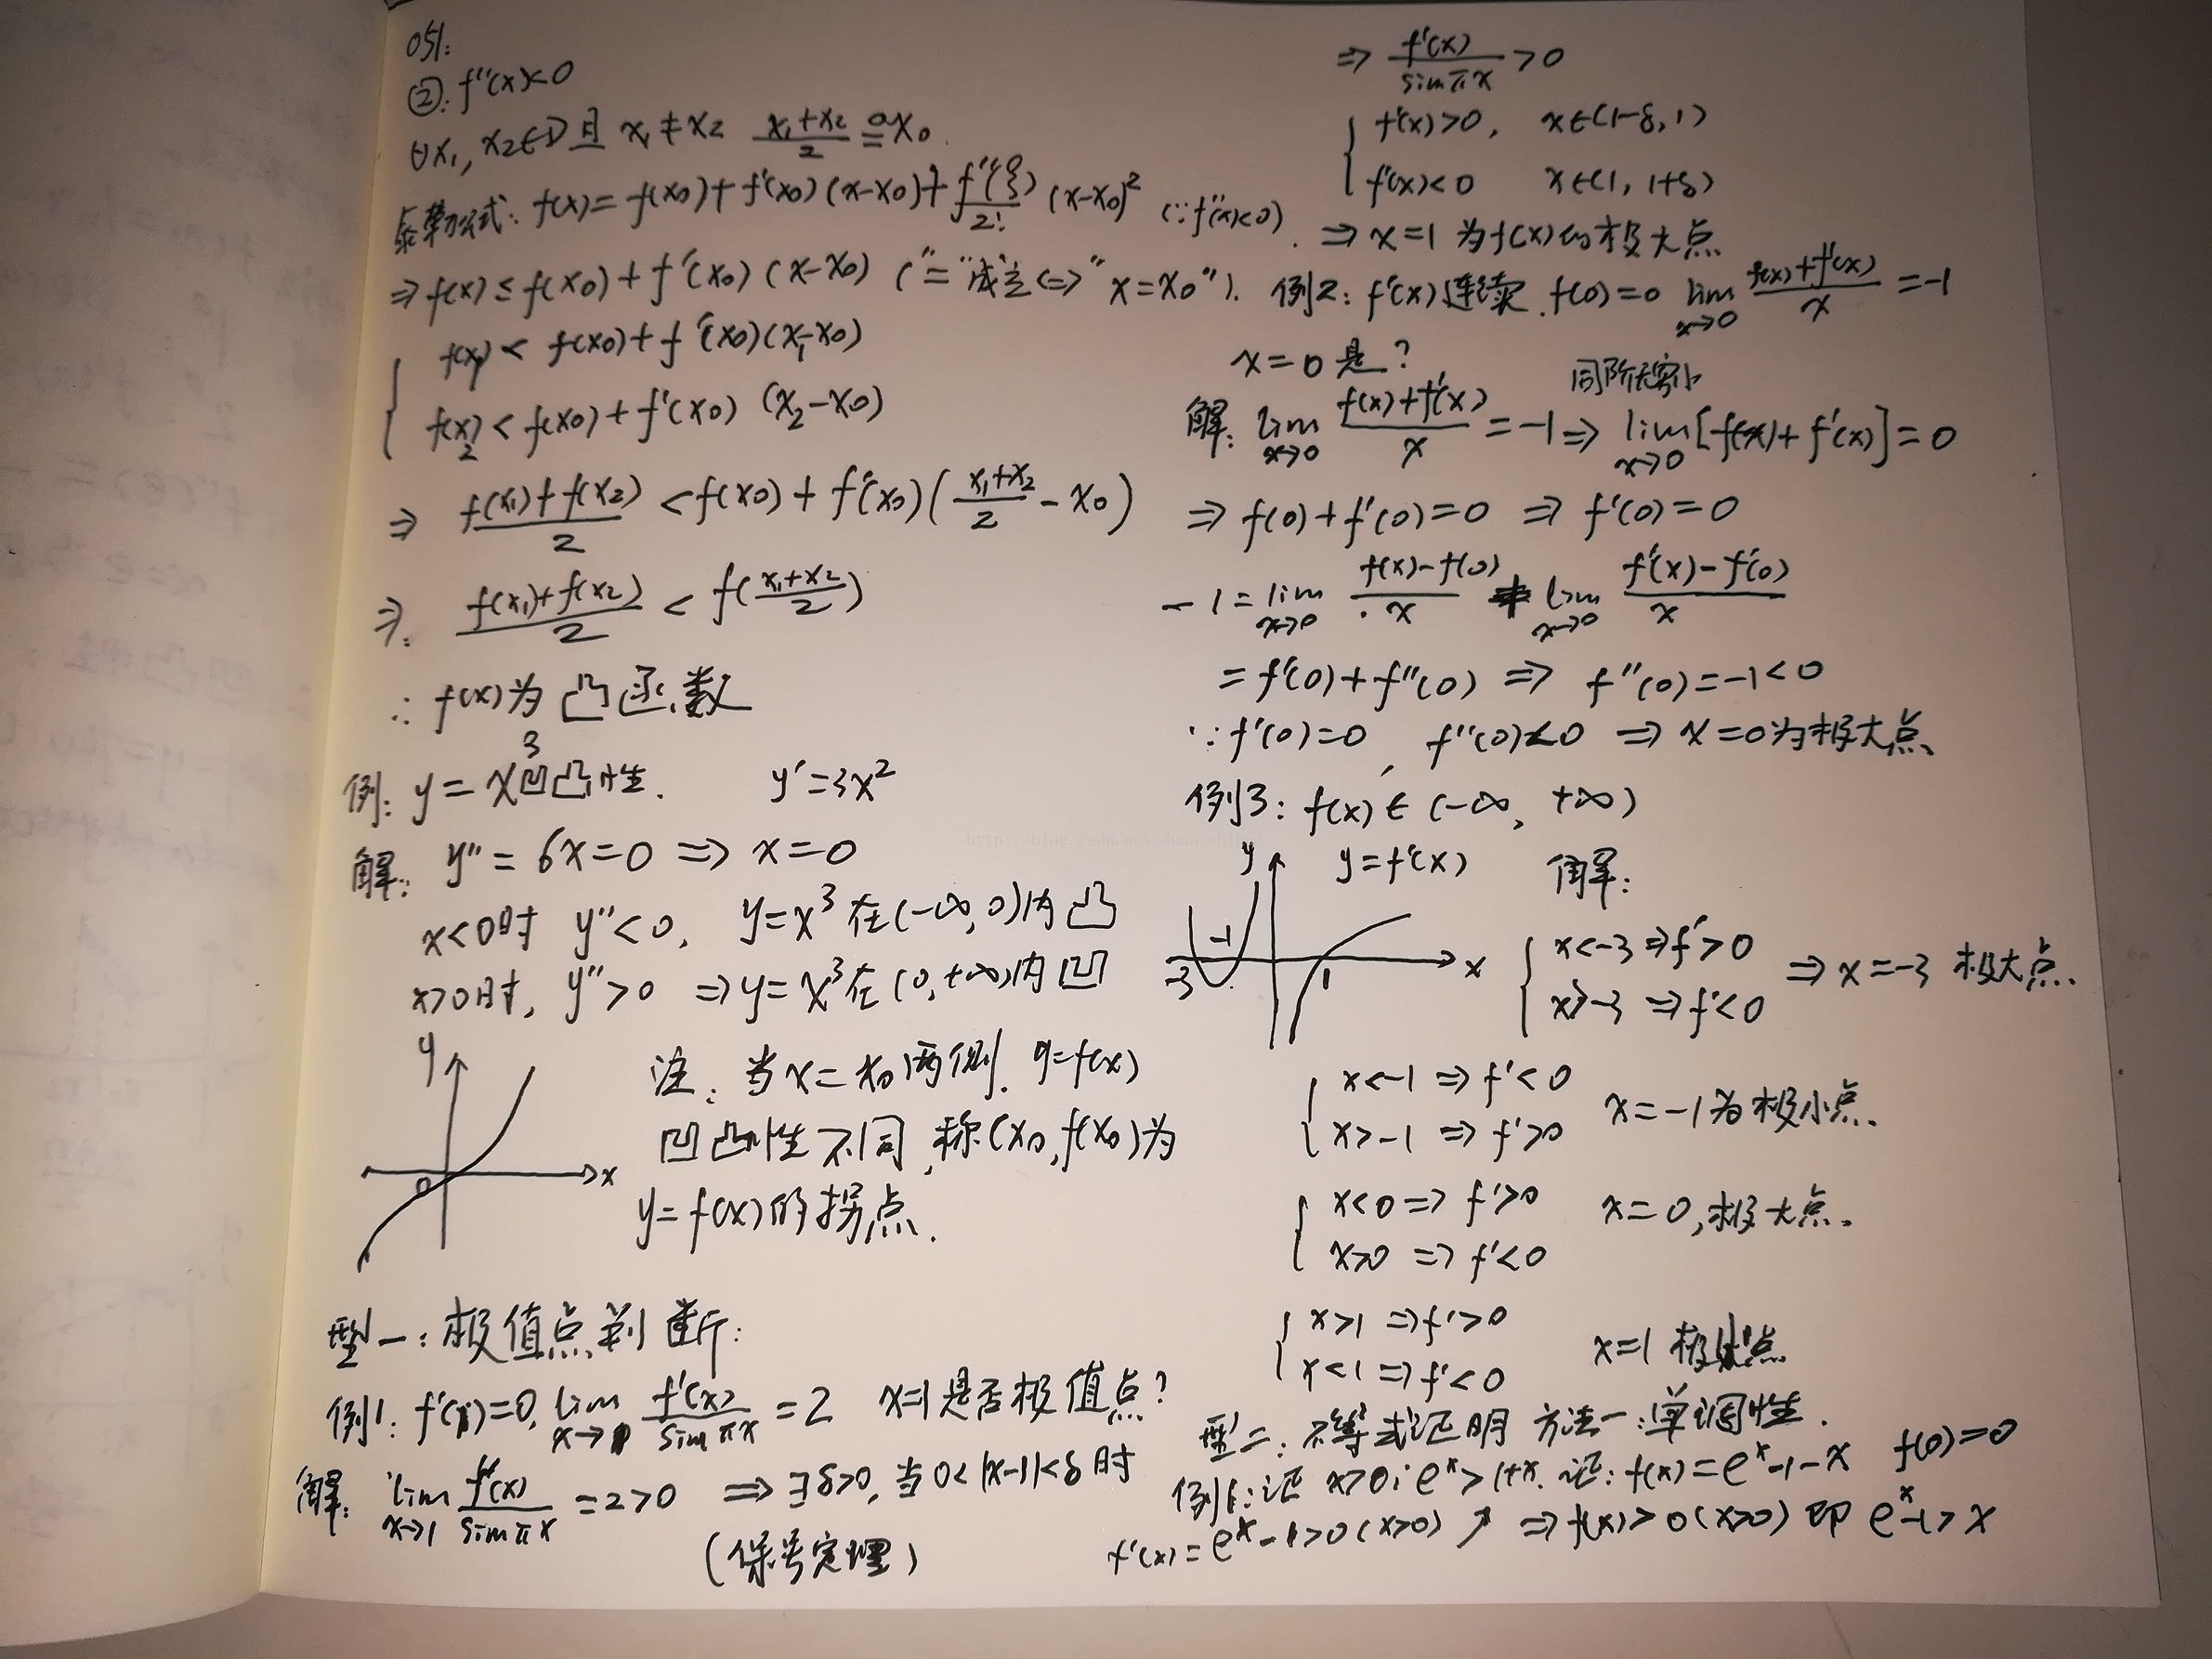 051:
②: f''(x)<0
∀x₁, x₂∈D 且 x₁≠x₂ (x₁+x₂)/2 ≜ x₀.
泰勒公式: f(x)=f(x₀)+f'(x₀)(x-x₀)+f''(ξ)/2! (x-x₀)² (∵f''(x)<0).
⇒f(x)≤f(x₀)+f'(x₀)(x-x₀) ("="成立⇔"x=x₀").
{ f(x₁)< f(x₀)+f'(x₀)(x₁-x₀)
f(x₂)<f(x₀)+f'(x₀)(x₂-x₀)
⇒ (f(x₁)+f(x₂))/2 <f(x₀)+f'(x₀)((x₁+x₂)/2 - x₀)
⇒. (f(x₁)+f(x₂))/2 < f((x₁+x₂)/2)
∴ f(x)为凸函数
例: y=x³凹凸性. y'=3x²
解: y''=6x=0 ⇒ x=0
x<0时 y''<0, y=x³在(-∞,0)内凸
x>0时, y''>0 ⇒y=x³在(0,+∞)内凹
y
0
x
注: 当x=x₀两侧. y=f(x)
凹凸性不同,称(x₀,f(x₀)为
y=f(x)的拐点.
型一:极值点判断:
例1: f'(1)=0, lim x→1 f'(x)/sinπx =2 x=1是否极值点?
解: lim x→1 f'(x)/sinπx =2>0 ⇒∃δ>0,当0<|x-1|<δ时
(保号定理)
⇒ f'(x)/sinπx >0
{ f'(x)>0, x∈(1-δ,1)
f'(x)<0 x∈(1,1+δ)
⇒x=1为f(x)的极大点
例2: f'(x)连续. f(0)=0 lim x→0 (f(x)+f'(x))/x =-1
x=0是?
同阶无穷小
解: lim x→0 (f(x)+f'(x))/x =-1⇒ lim x→0 [f(x)+f'(x)]=0
⇒f(0)+f'(0)=0 ⇒ f'(0)=0
-1=lim x→0 (f(x)-f(0))/x + lim x→0 (f'(x)-f'(0))/x
=f'(0)+f''(0) ⇒ f''(0)=-1<0
∵f'(0)=0, f''(0)<0 ⇒x=0为极大点
例3: f(x)∈(-∞, +∞)
y
y=f'(x)
-3
-1
1
x
解:
{ x<-3⇒f'>0
x>-3⇒f'<0
⇒x=-3极大点.
{ x<-1⇒f'<0
x>-1⇒f'>0
x=-1为极小点.
{ x<0⇒f'>0
x>0⇒f'<0
x=0,极大点.
{ x>1⇒f'>0
x<1⇒f'<0
x=1极小点
型二:不等式证明 方法一:单调性.
例1:证x>0: eˣ>1+x. 证:f(x)=eˣ-1-x f(0)=0
f'(x)=eˣ-1>0(x>0) ↗ ⇒f(x)>0(x>0)即eˣ-1>x